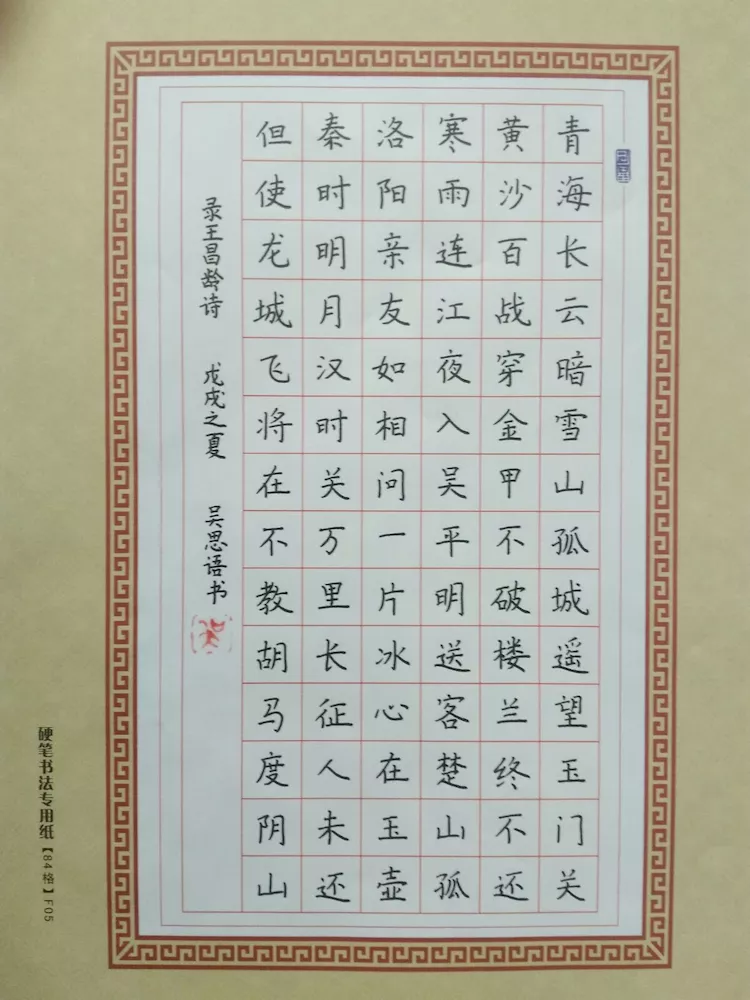 青海长云暗雪山孤城遥望玉门关
黄沙百战穿金甲不破楼兰终不还
寒雨连江夜入吴平明送客楚山孤
洛阳亲友如相问一片冰心在玉壶
秦时明月汉时关万里长征人未还
但使龙城飞将在不教胡马度阴山
录王昌龄诗 戊戌之夏 吴思语书
硬笔书法专用纸【84格】F05